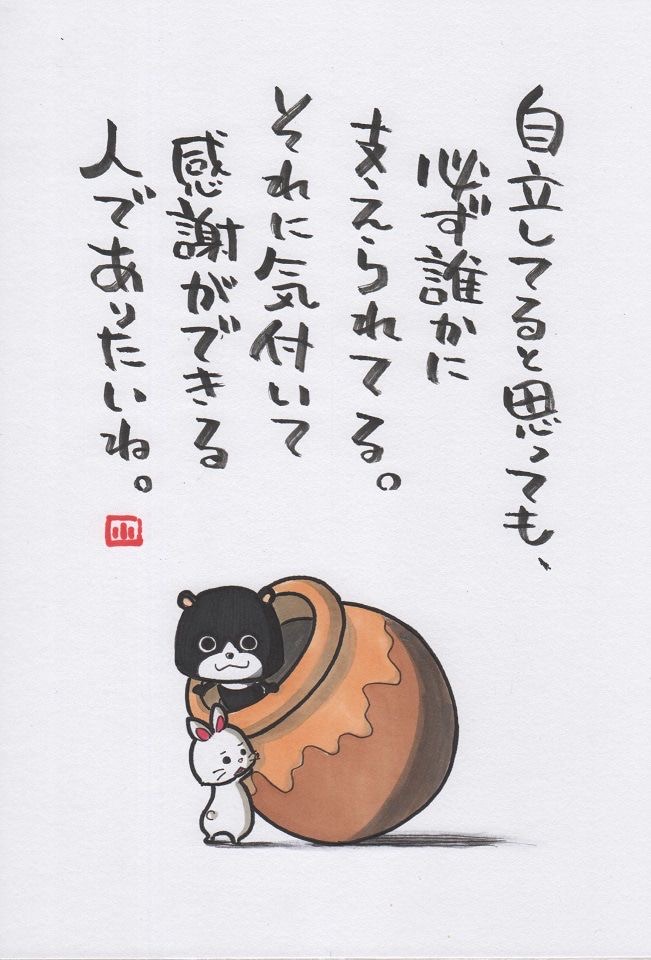 自立してると思っても、
必ず誰かに
支えられてる。
それに気付いて
感謝ができる
人でありたいね。